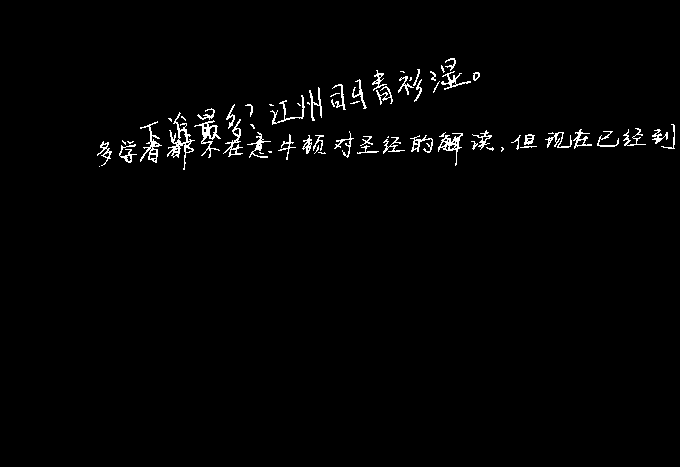 下谁最多?江州司马青衫湿。
多学者都不在意牛顿对圣经的解读,但现在已经到